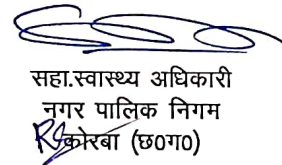 सहा.स्वास्थ्य अधिकारी
नगर पालिक निगम
कोरबा (छ0ग0)